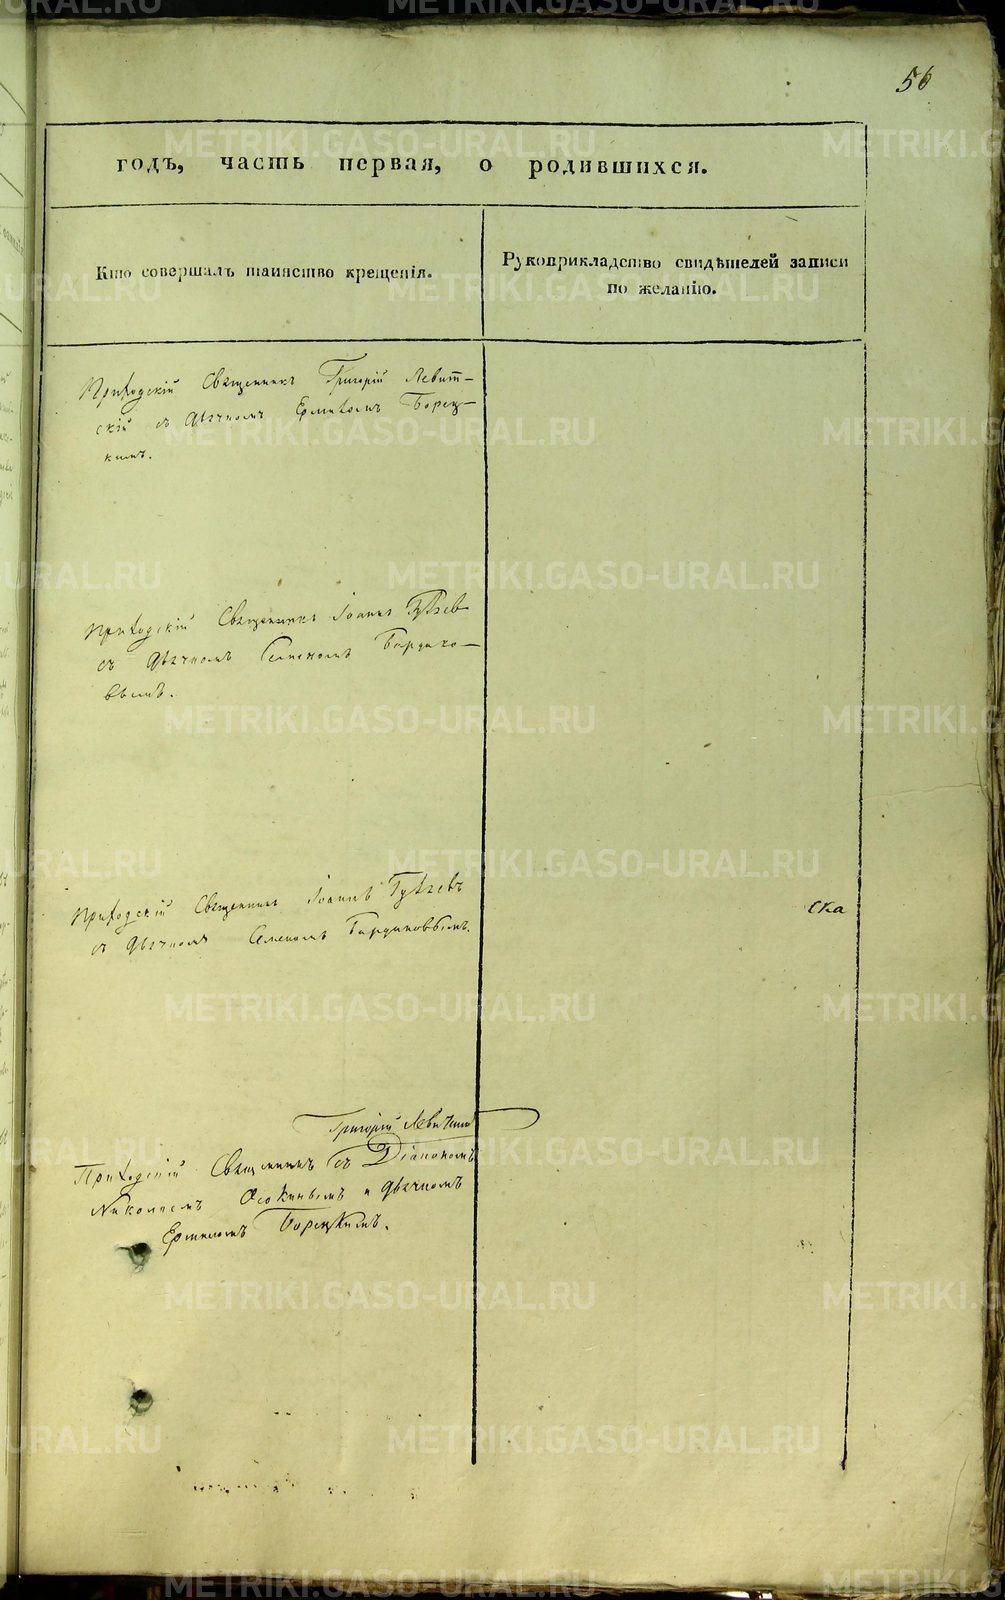 56
годъ, часть первая, о родившихся.
Кто совершалъ таинство крещенія.
Рукоприкладство свидѣтелей записи
по желанію.
Приходскій Священникъ Григорій Левит-
скій съ Дьячкомъ Ермиломъ Борец-
кимъ.
Приходскій Священникъ Іоаннъ
съ Дьячкомъ Семеномъ Бардуко-
вымъ.
Приходскій Священникъ Іоаннъ
съ Дьячкомъ Семеномъ Бардуковымъ.
ска
Григорій Левитскій
Приходскій Священникъ съ Діакономъ
Николаемъ Осокинымъ и Дьячкомъ
Ермиломъ Борецкимъ.
METRIKI.GASO-URAL.RU